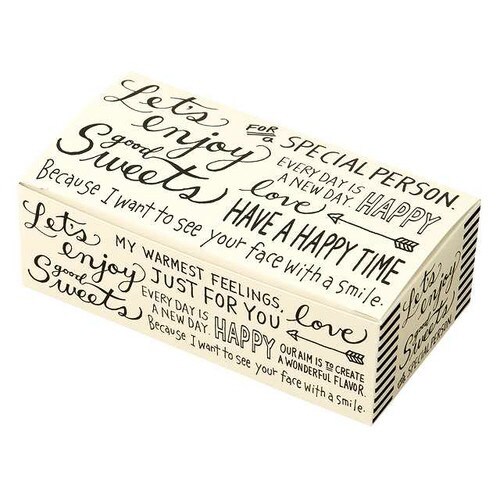 Let's
enjoy
good
Sweets
FOR
a SPECIAL PERSON.
EVERY DAY IS
A NEW DAY. HAPPY
love
HAVE A HAPPY TIME
Because I want to see your face with a smile.
Let's
enjoy
good
Sweets
MY WARMEST FEELINGS,
JUST FOR YOU
love
EVERY DAY IS
A NEW DAY. HAPPY
OUR AIM IS TO CREATE
A WONDERFUL FLAVOR.
Because I want to see your face with a smile.
Let's
enjoy
good
Sweets
FOR
a SPECIAL PERSON.